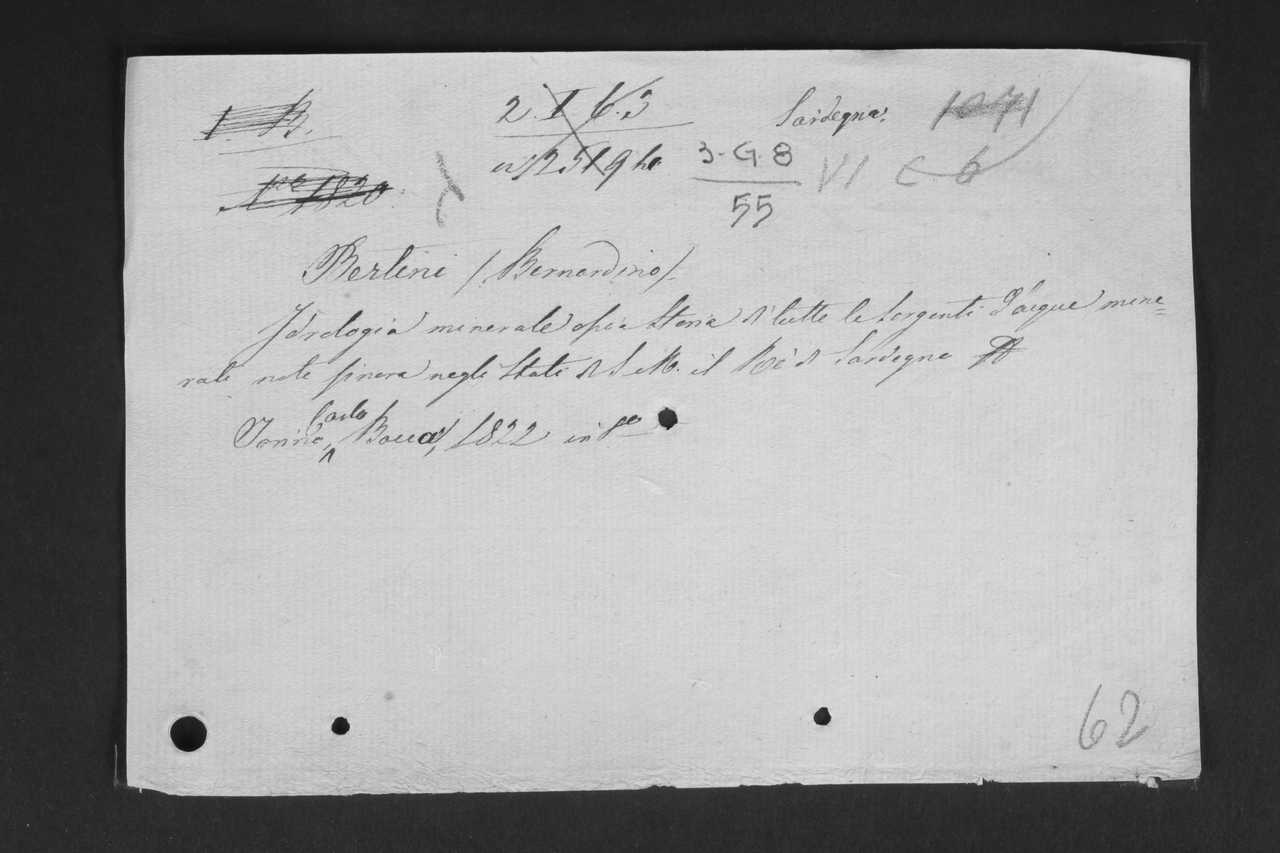 1 B.
2. I 6. 3
Sardegna.
1071
3. G. 8
55
VI C 6
1820
Bertini (Bernardino)
Idrologia minerale ossia Storia di tutte le sorgenti d'acque mine=
rali note finora negli Stati di S. M. il Rè di Sardegna
Carlo
Torino, Bocca, 1822 in 8º
62